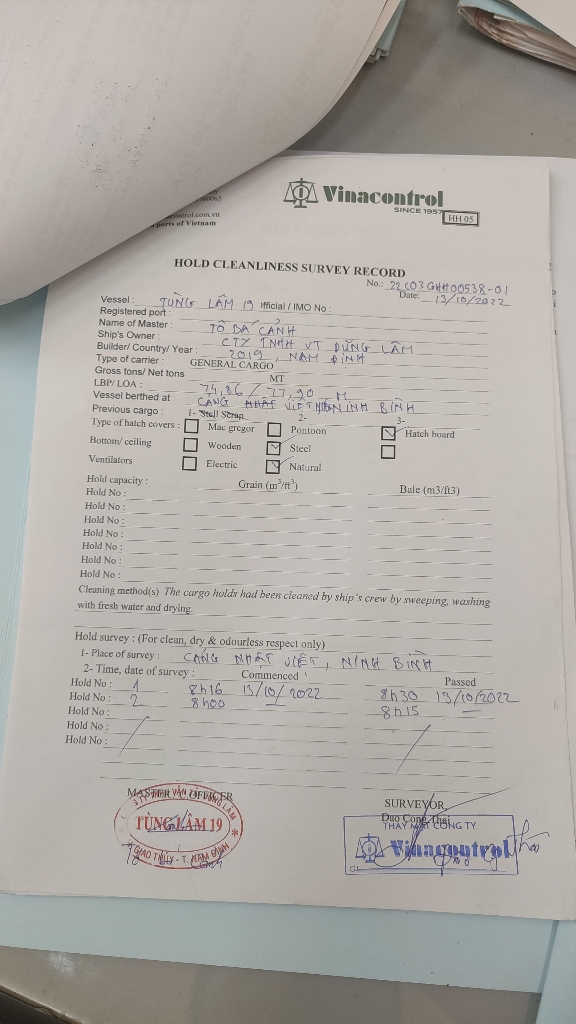 Vinacontrol
SINCE 1957
HH 05
ports of Vietnam
HOLD CLEANLINESS SURVEY RECORD
No.: 22C03GHH00538-01
Date: 13/10/2022
Vessel : TÙNG LÂM 19 Official / IMO No :
Registered port :
Name of Master : TÔ BÁ CẢNH
Ship's Owner : CTY TNHH VT DŨNG LÂM
Builder/ Country/ Year : 2019, NAM ĐỊNH
Type of carrier : GENERAL CARGO
Gross tons/ Net tons MT
LBP/ LOA : 74,86 / 77,90 M
Vessel berthed at : CẢNG NHẤT VIỆT NINH BÌNH
Previous cargo : 1- Stell Scrap 2- 3-
Type of hatch covers : Mac gregor Pontoon Hatch board
Bottom/ ceiling Wooden Steel
Ventilators Electric Natural
Hold capacity : Grain (m³/ft³) Bale (m3/ft3)
Hold No :
Hold No :
Hold No :
Hold No :
Hold No :
Hold No :
Hold No :
Cleaning method(s) The cargo holds had been cleaned by ship's crew by sweeping, washing
with fresh water and drying.
Hold survey : (For clean, dry & odourless respect only)
1- Place of survey : CẢNG NHẤT VIỆT, NINH BÌNH
2- Time, date of survey : Commenced Passed
Hold No : 1 8h16 13/10/2022 8h30 13/10/2022
Hold No : 2 8h00 — 8h15 —
Hold No :
Hold No :
Hold No :
MASTER/ C.OFFICER
TÙNG LÂM 19
GIAO THỦY - T. NAM ĐỊNH
SURVEYOR,
Dao Cong Thai
THAY MẶT CÔNG TY
Vinacontrol